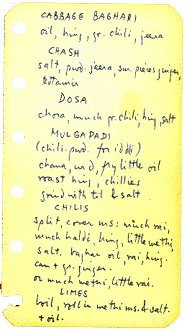 CABBAGE BAGHARI
oil, hing, gr. chili, jeera
CHASH
salt, pwd. jeera, sm. pieces ginger,
DOSA
chora, much gr. chili, hing, salt
MULGAPADI
(chili pwd. for idli)
chana, urd, fry little oil
roast hing, chillies
grind with til & salt
CHILIS
split cover ms: much rai,
much haldi, hing, little methi,
salt. baghar oil, rai, hing.
can + gr. sugar.
or much methi, little rai.
LIMES
boil, roll in methi ms. & salt
+ oil.